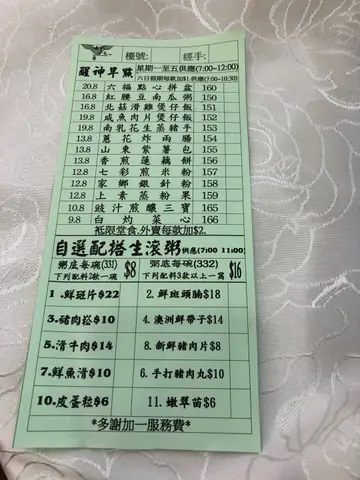 檯號: 經手:
醒神早點 星期一至五供應(7:00~12:00)
六日假期每款加$1 供應(7:00~10:30)
20.8 六福點心拼盆 160
16.8 紅腰豆南瓜粥 150
16.8 北菇滑雞煲仔飯 151
19.8 咸魚肉片煲仔飯 152
19.8 南乳花生蒸豬手 153
13.8 蔥花炸兩腸 154
13.8 山東紫薯包 155
13.8 香煎蓮藕餅 156
12.8 七彩煎米粉 157
12.8 家鄉銀針粉 158
12.8 上素蒸粉果 159
10.8 豉汁煎釀三寶 165
9.8 白灼菜心 166
祗限堂食.外賣每款加$2.
自選配搭生滾粥 供應(7:00 11:00)
粥底每碗(331) $8 粥底每碗(332) $16
下列配料2款一塊 下列配料3款以上一窩
1.鮮斑片$22 2.鮮斑頭腩$18
3.豬肉崧$10 4.澳洲鮮帶子$14
5.滑牛肉$14 8.新鮮豬肉片$8
7.鮮魚滑$10 6.手打豬肉丸$10
10.皮蛋粒$6 11.嫩翠苗$6
*多謝加一服務費*